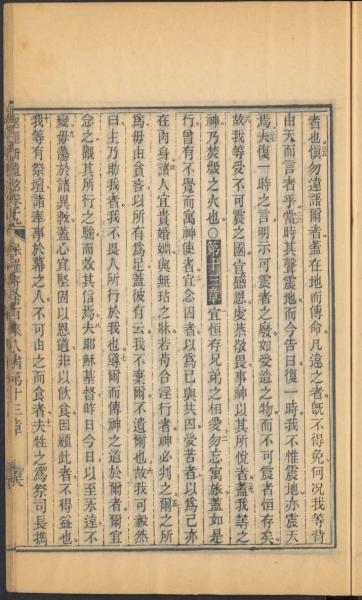 者也慎勿違語爾者蓋在地而傳命凡違之者既不得免何況我等背
由天而言者乎當時其聲震地而今告曰復一時我不惟震地亦震天
焉夫復一時之言明示可震者之廢如受造之物而不可震者恒存矣
故我等受不可震之國宜感恩虔恭敬畏事神以其所悅者蓋我等之
神乃焚燬之火也〇第十三章宜恒存兄弟之相愛勿忘寓旅蓋如是
行曾有不覺而寓神使者宜念囚者以爲己與共囚憂苦者以爲己亦
在肉身諸人宜貴婚姻與無玷之牀若苟合淫行者神必判之爾之所
爲毋由貪吝以所有爲足蓋彼有云我不棄爾不遺爾也故我可毅然
曰主乃助我者我不畏人所行於我也導爾而傳神之道於爾者爾宜
念之觀其所行之驗而效其信焉夫耶穌基督昨日今日以至永遠不
變毋蕩於諸異教蓋心宜堅固以恩道非以飲食因顧此者不得益也
我等有祭壇諸奉事於幕之人不可由之而食者夫牲之爲祭司長攜